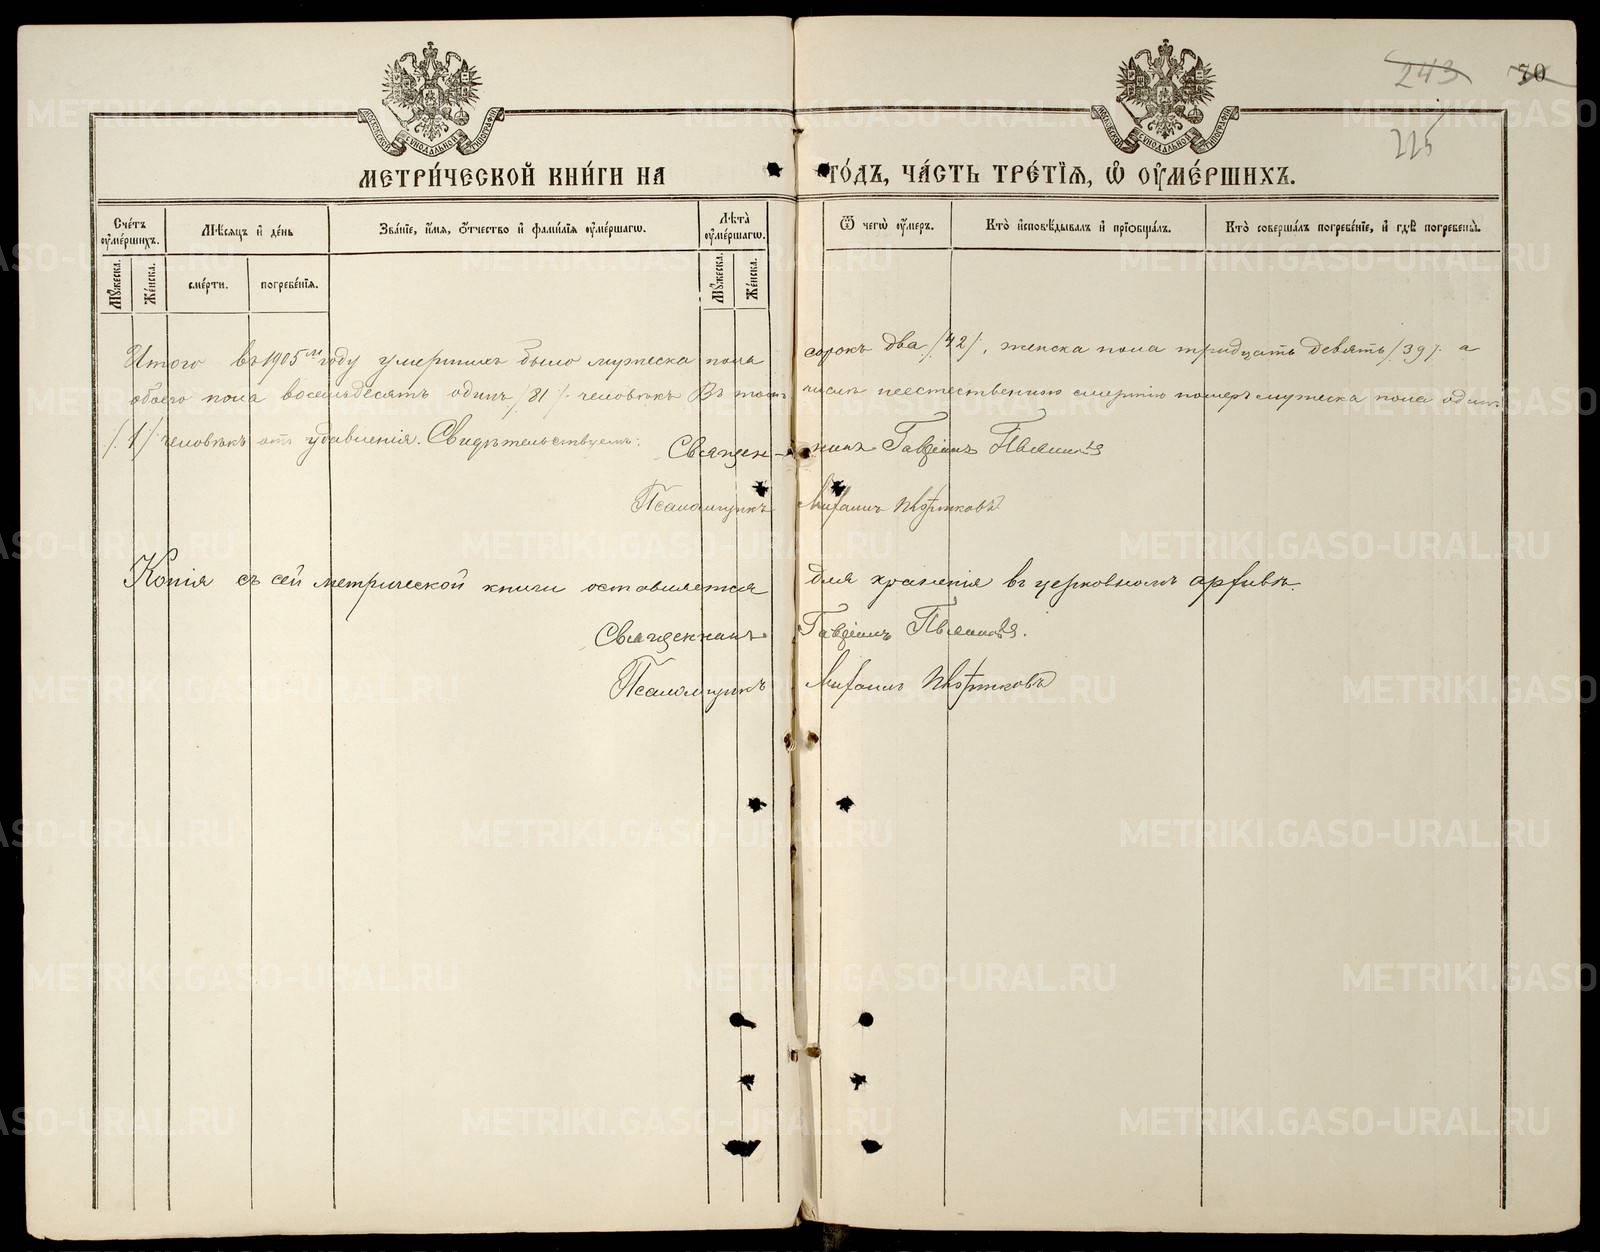 243
70
225
МОСКОВСКОЙ СѴНОДАЛЬНОЙ ТИПОГРАФІИ
МОСКОВСКОЙ СѴНОДАЛЬНОЙ ТИПОГРАФІИ
МЕТРИ́ЧЕСКОЙ КНИ́ГИ НА ГО́ДЪ, ЧА́СТЬ ТРЕ́ТІѦ, Ѽ ОУ҆МЕ́РШИХЪ.
Сче́тъ оу҆ме́ршихъ.
Мѣ́сяцъ и҆ де́нь
Зва́нїе, и҆́мѧ, ѻ҆́тчество и҆ фами́лїѧ оу҆ме́ршагѡ.
Лѣ́та оу҆ме́ршагѡ.
Ѿ чегѡ̀ оу҆́меръ.
Кто̀ и҆сповѣ́дывалъ и҆ прїѡбща́лъ.
Кто̀ соверша́лъ погребе́нїе, и҆ гдѣ̀ погребены̀.
Мꙋ́жеска.
Же́нска.
сме́рти.
погребе́нїѧ.
Мꙋ́жеска.
Же́нска.
Итого въ 1905м году умершихъ было мужеска пола сорокъ два /42/, женска пола тридцать девять /39/. а
обоего пола восемьдесятъ одинъ /81/ человѣкъ Въ томъ числѣ неестественною смертію померъ мужеска пола одинъ
/1/ человѣкъ отъ удавленія. Свидѣтельствуемъ:
Священникъ Гавріилъ
Псаломщикъ Михаилъ
Копія съ сей метрической книги оставляется для храненія въ церковномъ архивѣ.
Священникъ Гавріилъ
Псаломщикъ Михаилъ
METRIKI.GASO-URAL.RU